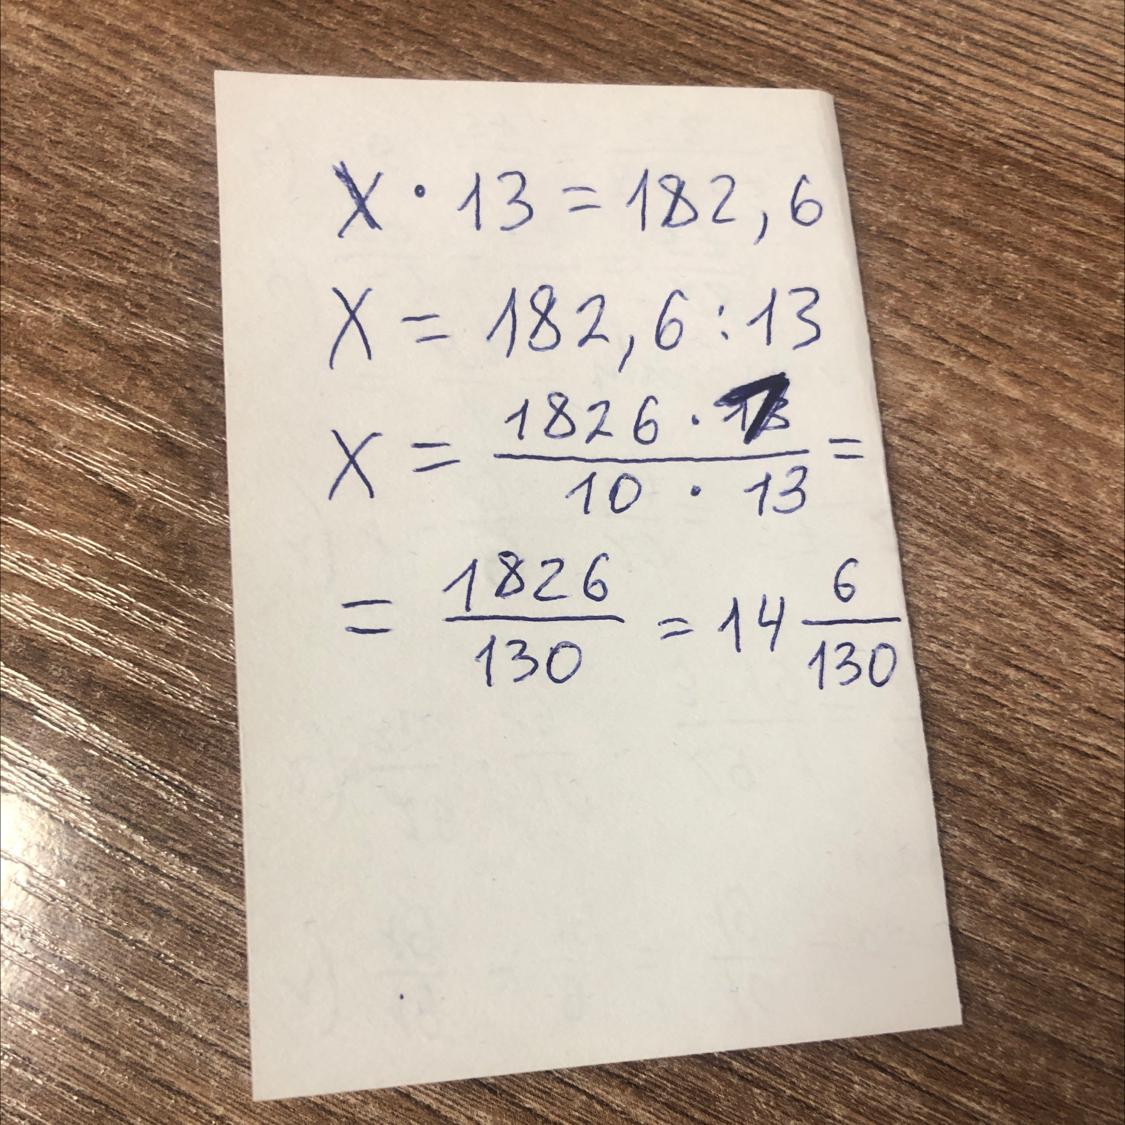 X · 13 = 182,6
X = 182,6 : 13
X = \frac{1826 · 1}{10 · 13} =
= \frac{1826}{130} = 14 \frac{6}{130}